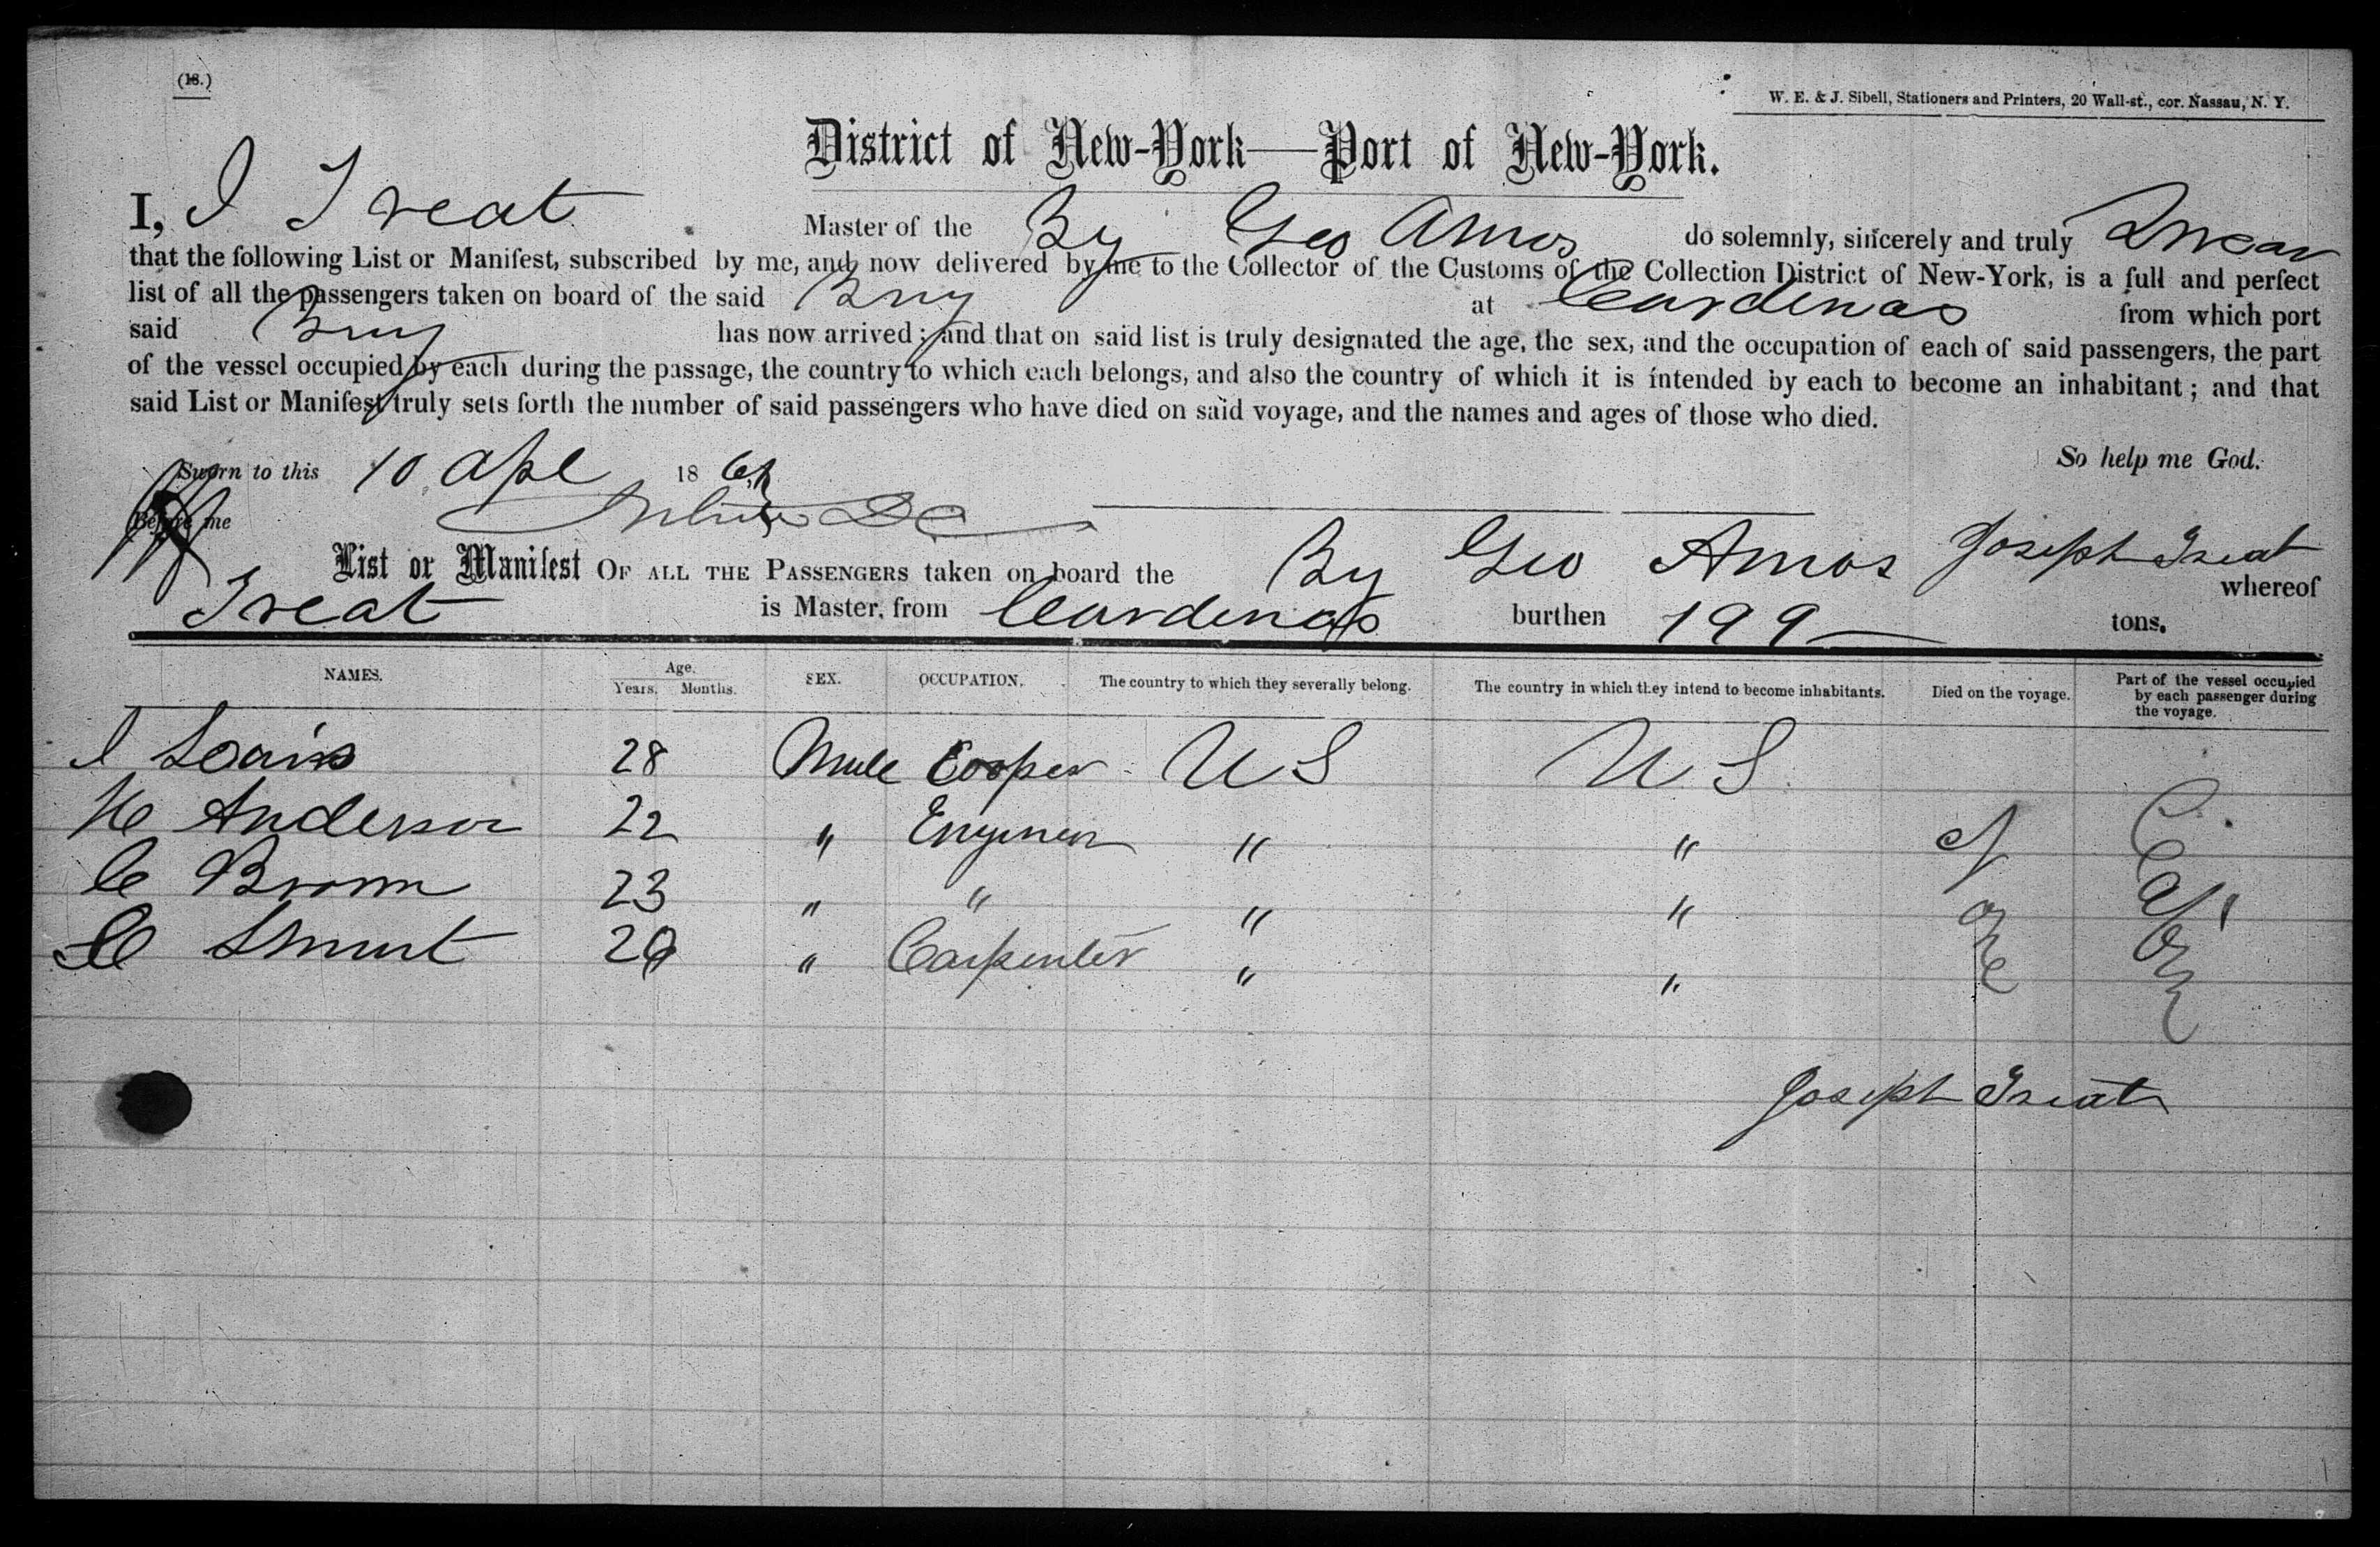 (18.)
W. E. & J. Sibell, Stationers and Printers, 20 Wall-st., cor. Nassau, N. Y.
District of New-York—Port of New-York.
I, J Treat Master of the Bg Geo Amos do solemnly, sincerely and truly Swear
that the following List or Manifest, subscribed by me, and now delivered by me to the Collector of the Customs of the Collection District of New-York, is a full and perfect
list of all the passengers taken on board of the said Brig at Cardenas from which port
said Brig has now arrived; and that on said list is truly designated the age, the sex, and the occupation of each of said passengers, the part
of the vessel occupied by each during the passage, the country to which each belongs, and also the country of which it is intended by each to become an inhabitant; and that
said List or Manifest truly sets forth the number of said passengers who have died on said voyage, and the names and ages of those who died.
So help me God.
Sworn to this 10 Apl 186
Before me
Joseph Treat
List or Manifest OF ALL THE PASSENGERS taken on board the Bg Geo Amos whereof
Treat is Master, from Cardenas burthen 199 tons.
NAMES. Age. Years. Months. SEX. OCCUPATION. The country to which they severally belong. The country in which they intend to become inhabitants. Died on the voyage. Part of the vessel occupied by each passenger during the voyage.
J 28 Male Cooper U S U S
H Anderson 22 " Engineer " "
C Brown 23 " " " "
C " Carpenter " "
Joseph Treat